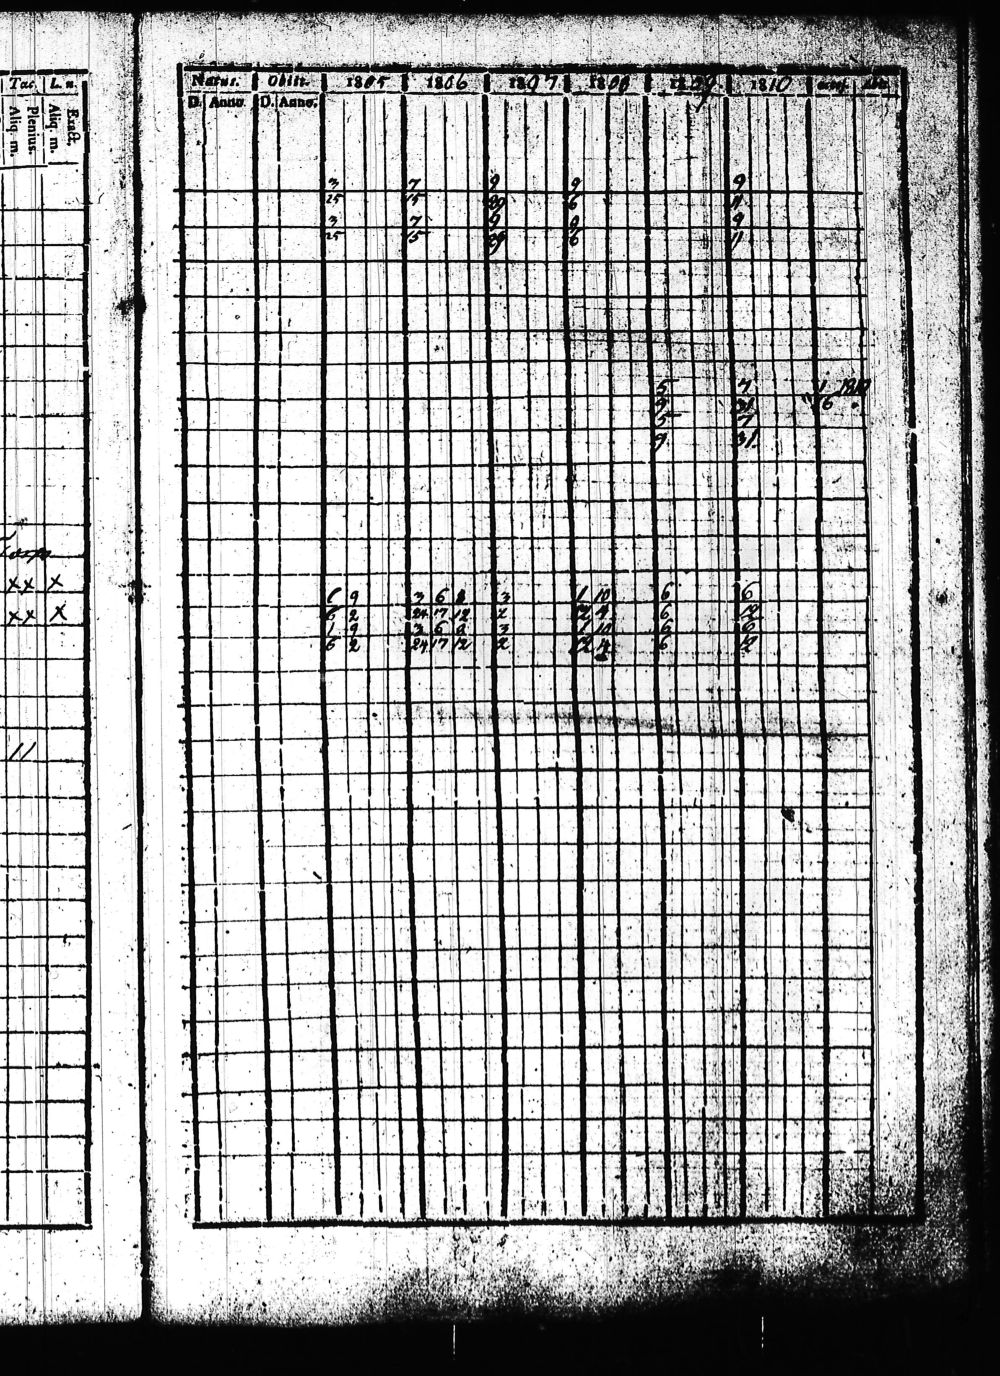 Tac. L. n.
Plenius. Aliq. m.
Exact. Aliq. m.
xx x
xx x
11
Natus. Obiit. 1805 1806 1807 1808 1809 1810
D. Anno. D. Anno.
3 7 9 9 9
25 15 6 11
3 7 9 9 9
25 15 6 11
5 7 1 1810
9 31 6
5 7
9 31
9 3 6 8 3 1 10 6 6
6 2 24 17 12 2 12 4 6 12
1 9 3 6 8 3 1 10 6 6
6 2 24 17 12 2 12 4 6 12